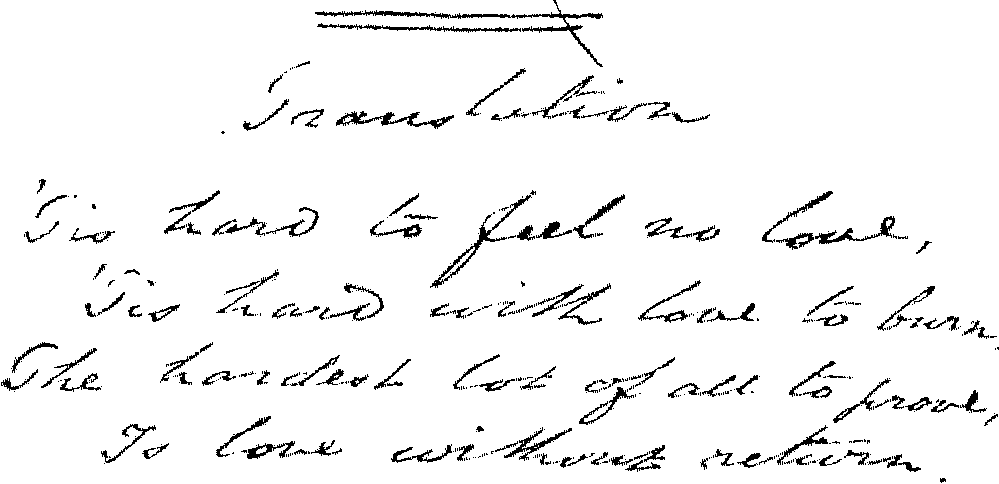 Translation
'Tis hard to feel no love,
'Tis hard with love to burn,
The hardest lot of all to prove,
Is love without return.